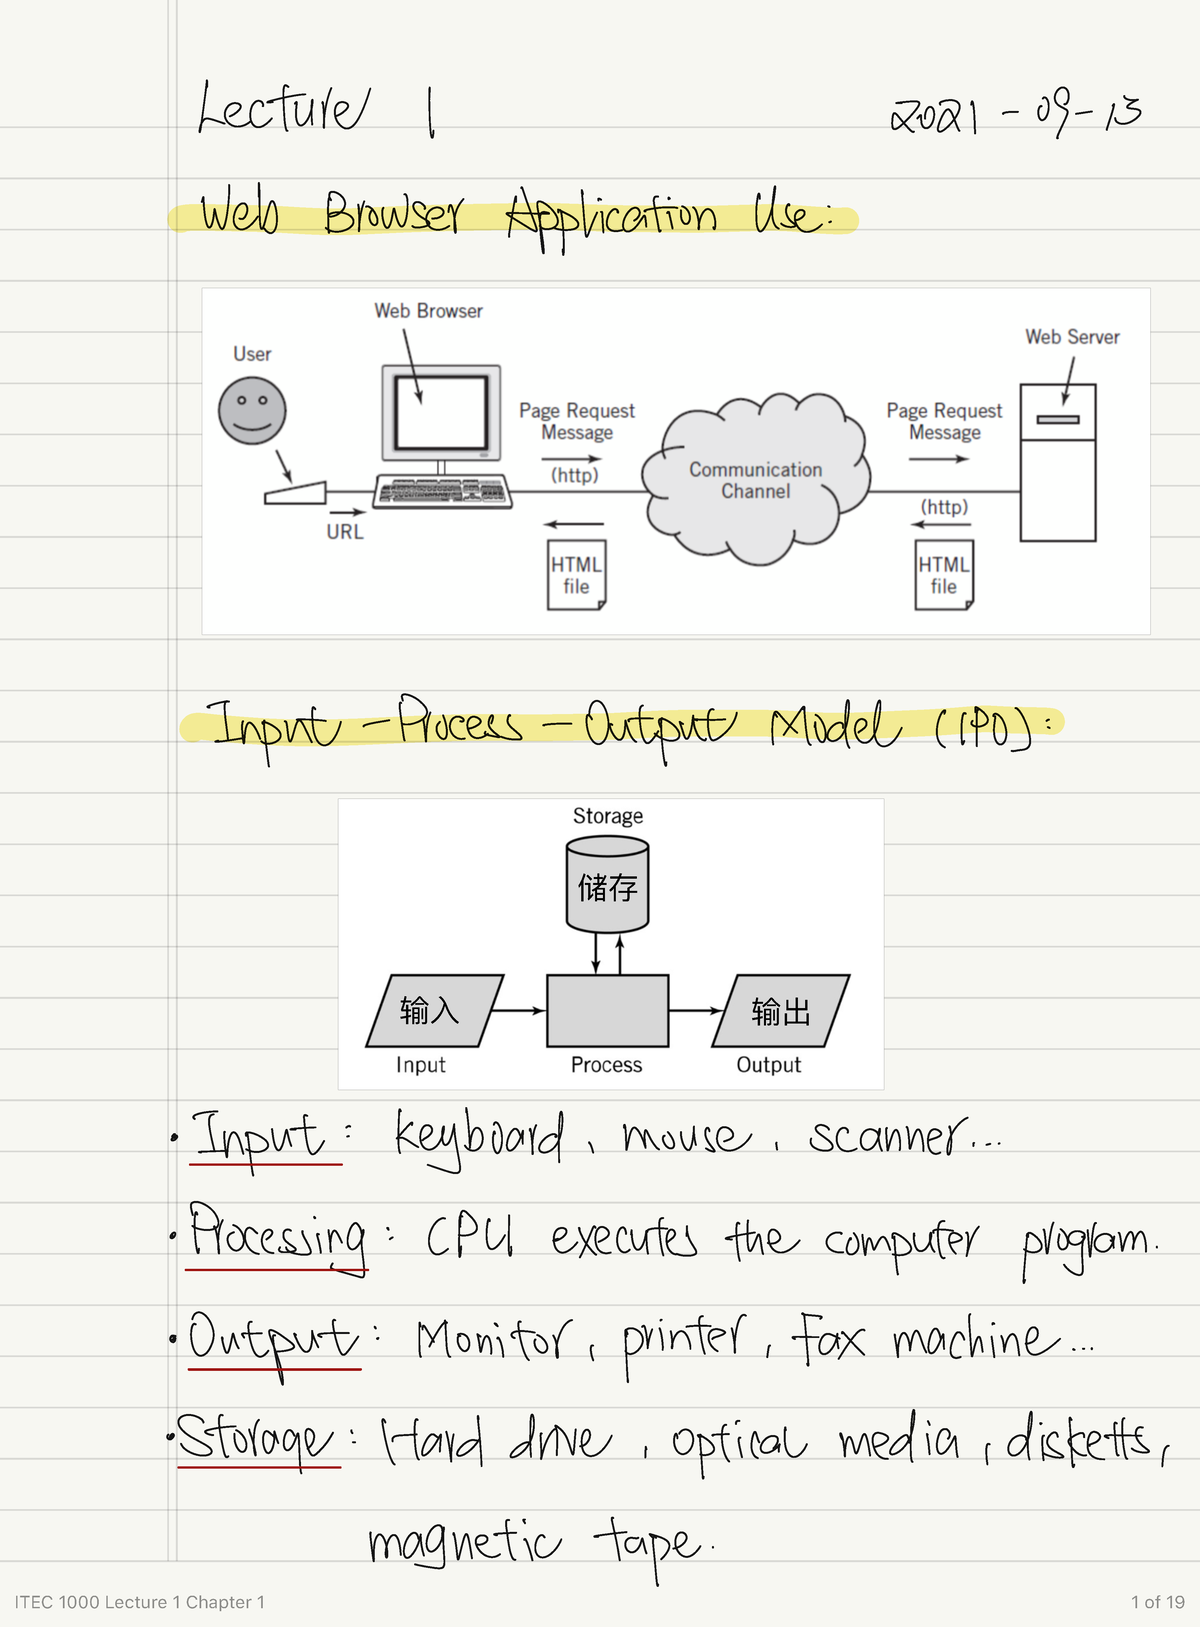 Lecture 1 2021-09-13
Web Browser Application Use:
Web Browser
User
Web Server
Page Request
Message
(http)
Communication
Channel
Page Request
Message
(http)
URL
HTML
file
HTML
file
Input-Process-Output Model (IPO):
Storage
储存
输入
输出
Input
Process
Output
· Input: keyboard, mouse, scanner...
· Processing: CPU executes the computer program.
· Output: Monitor, printer, Fax machine...
· Storage: Hard drive, optical media, disketts,
magnetic tape.
ITEC 1000 Lecture 1 Chapter 1
1 of 19